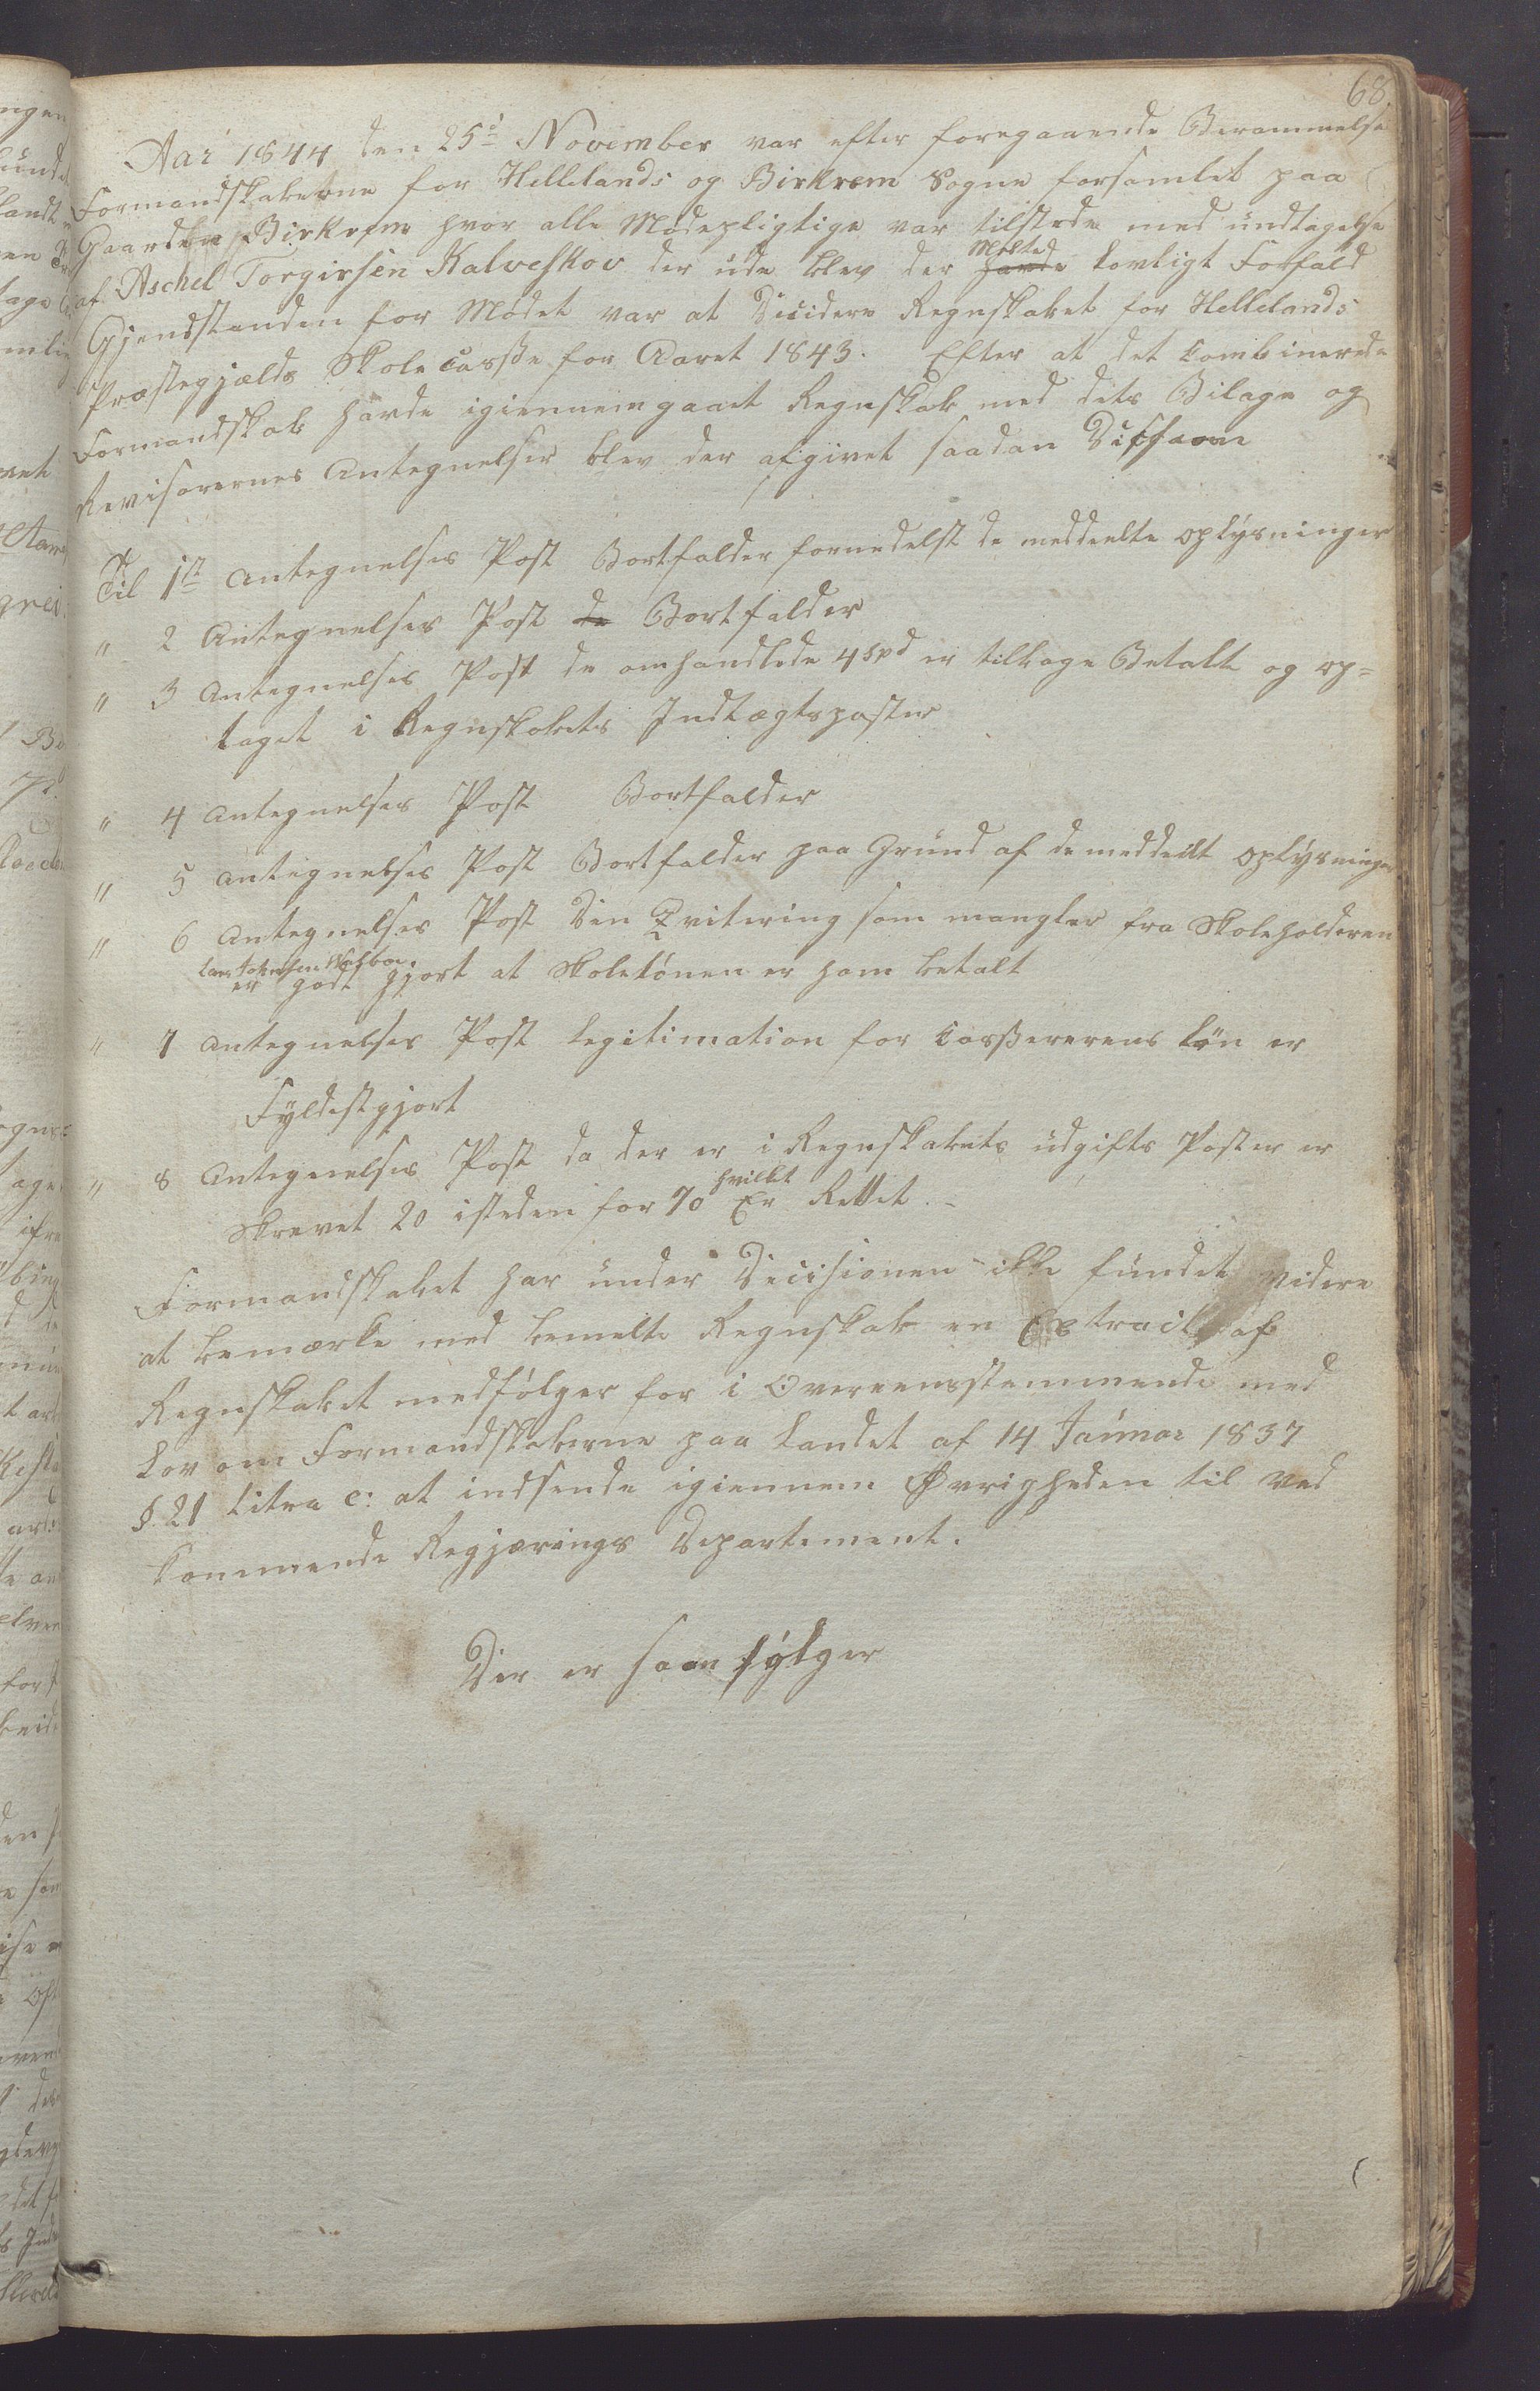 68.
Aar 1844 den 25de November var efter foregaaende Berammelse
Formandskaberne for Hellelands og Birkrem Sogne forsamlet paa
Gaarden Birkrem hvor alle Mødepligtige var tilstede med undtagelse
af Aschel Torgirsen Kalveskov der ude blev der havde lovligt Forfald
Gjenstanden for Mødet var at Decidere Regnskabet for Hellelands
Præstegjælds Skolecasse for Aaret 1843. Efter at det Combinerede
Formandskab havde igiennemgaaet Regnskab med dets Bilage og
Revisorernes Antegnelser blev der afgivet saadan
Til 1te Antegnelses Post Bortfalder formedelst de meddeelte oplysninger
" 2 Antegnelses Post de Bortfalder
" 3 Antegnelses Post de omhandlede 4 Spd er tilbage Betalt og op=
taget i Regnskabets Indtægtsposter
" 4 Antegnelses Post Bortfalder
" 5 Antegnelses Post Bortfalder paa Grund af de meddeelt oplysninger
" 6 Antegnelses Post Den Qvitering som mangler fra Skoleholderen
er godt gjort at Skolelønen er ham betalt
" 7 Antegnelses Post Legitimation for Cassererens Løn er
Fyldestgjort
" 8 Antegnelses Post da der er i Regnskabets udgifts Poster er
hvilket
Skrevet 20 isteden for 70 Er Rettet. -
Formandskabet har under Decisionen ikke fundet videre
at bemærke med bemelte Regnskab en Extract af
Regnskabet medfølger for i Overeensstemmende med
Lov om Formandskaberne paa Landet af 14 Januar 1837
§. 21 Litra c: at indsende igiennem Øvrigheden til ved
kommende Regjærings Departement.
Der er saa følger